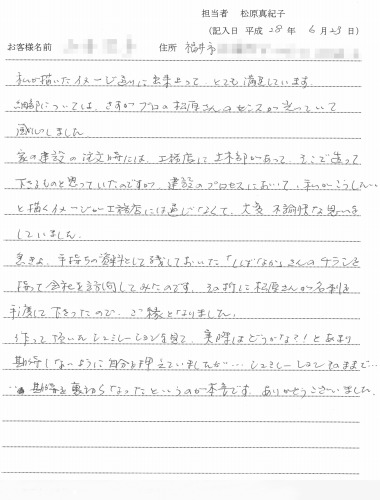 担当者 松原真紀子
(記入日 平成 28 年 6 月 23 日)
お客様名前 住所 福井市
私が描いたイメージ通りに出来上って、とても満足しています。
細部については、さすがプロの松原さんのセンスが光っていて
感心しました。
家の建設の注文時には、工務店に土木部があって、そこで造って
下さるものと思っていたのですが、建設のプロセスにおいて、私がこうしたい…
と描くイメージが工務店には通じなくて、大変不愉快な思いを
していました。
急きょ、手持ちの資料として残しておいた「しばなか」さんのチラシを
持って会社を訪問してみたのです。その折に松原さんが名刺を
手渡して下さったので、ご縁となりました。
作って頂いたシュミレーションを見て、実際はどうかな？！とあまり
期待しないように自分を押えていましたが…シュミレーションそのままで…
…期待を裏切らなかったというのが本音です。ありがとうございました。